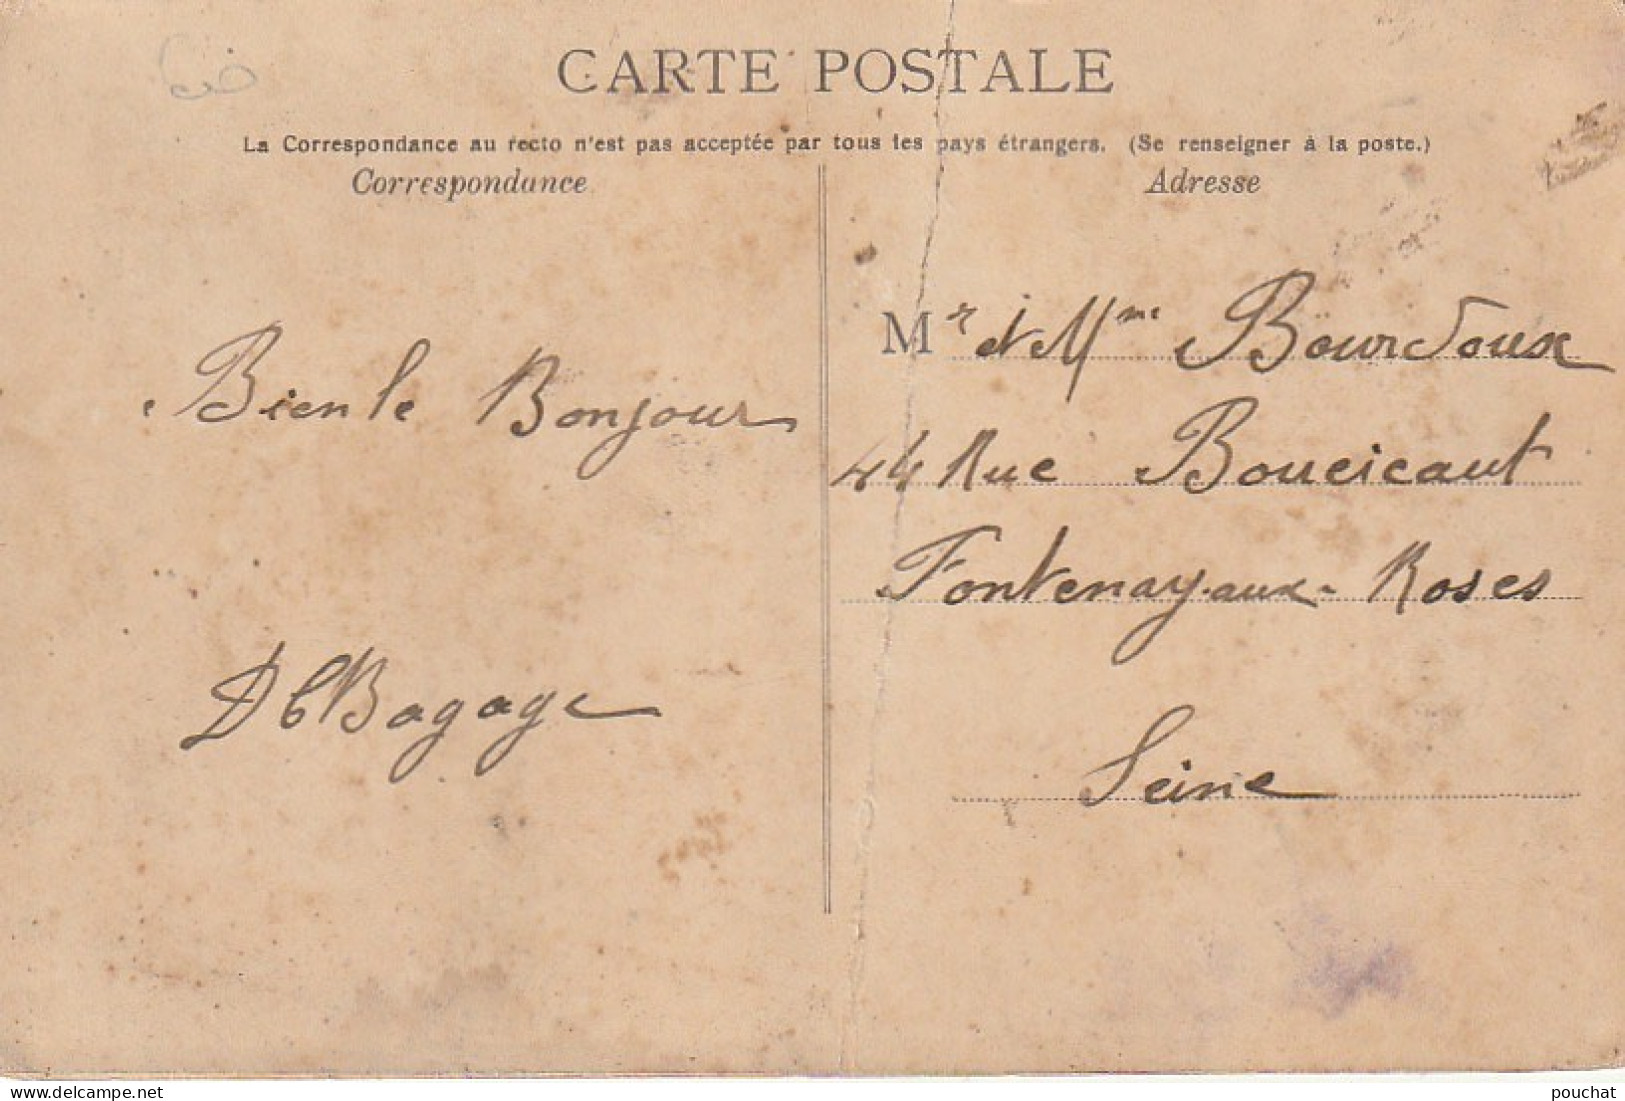 CARTE POSTALE
La Correspondance au recto n'est pas acceptée par tous les pays étrangers. (Se renseigner à la poste.)
Correspondance
Bien le Bonjour
Bagage
Adresse
Mr et Mme Bourdoux
44 Rue Boucicaut
Fontenay-aux-Roses
Seine
www.delcampe.net
pouchat